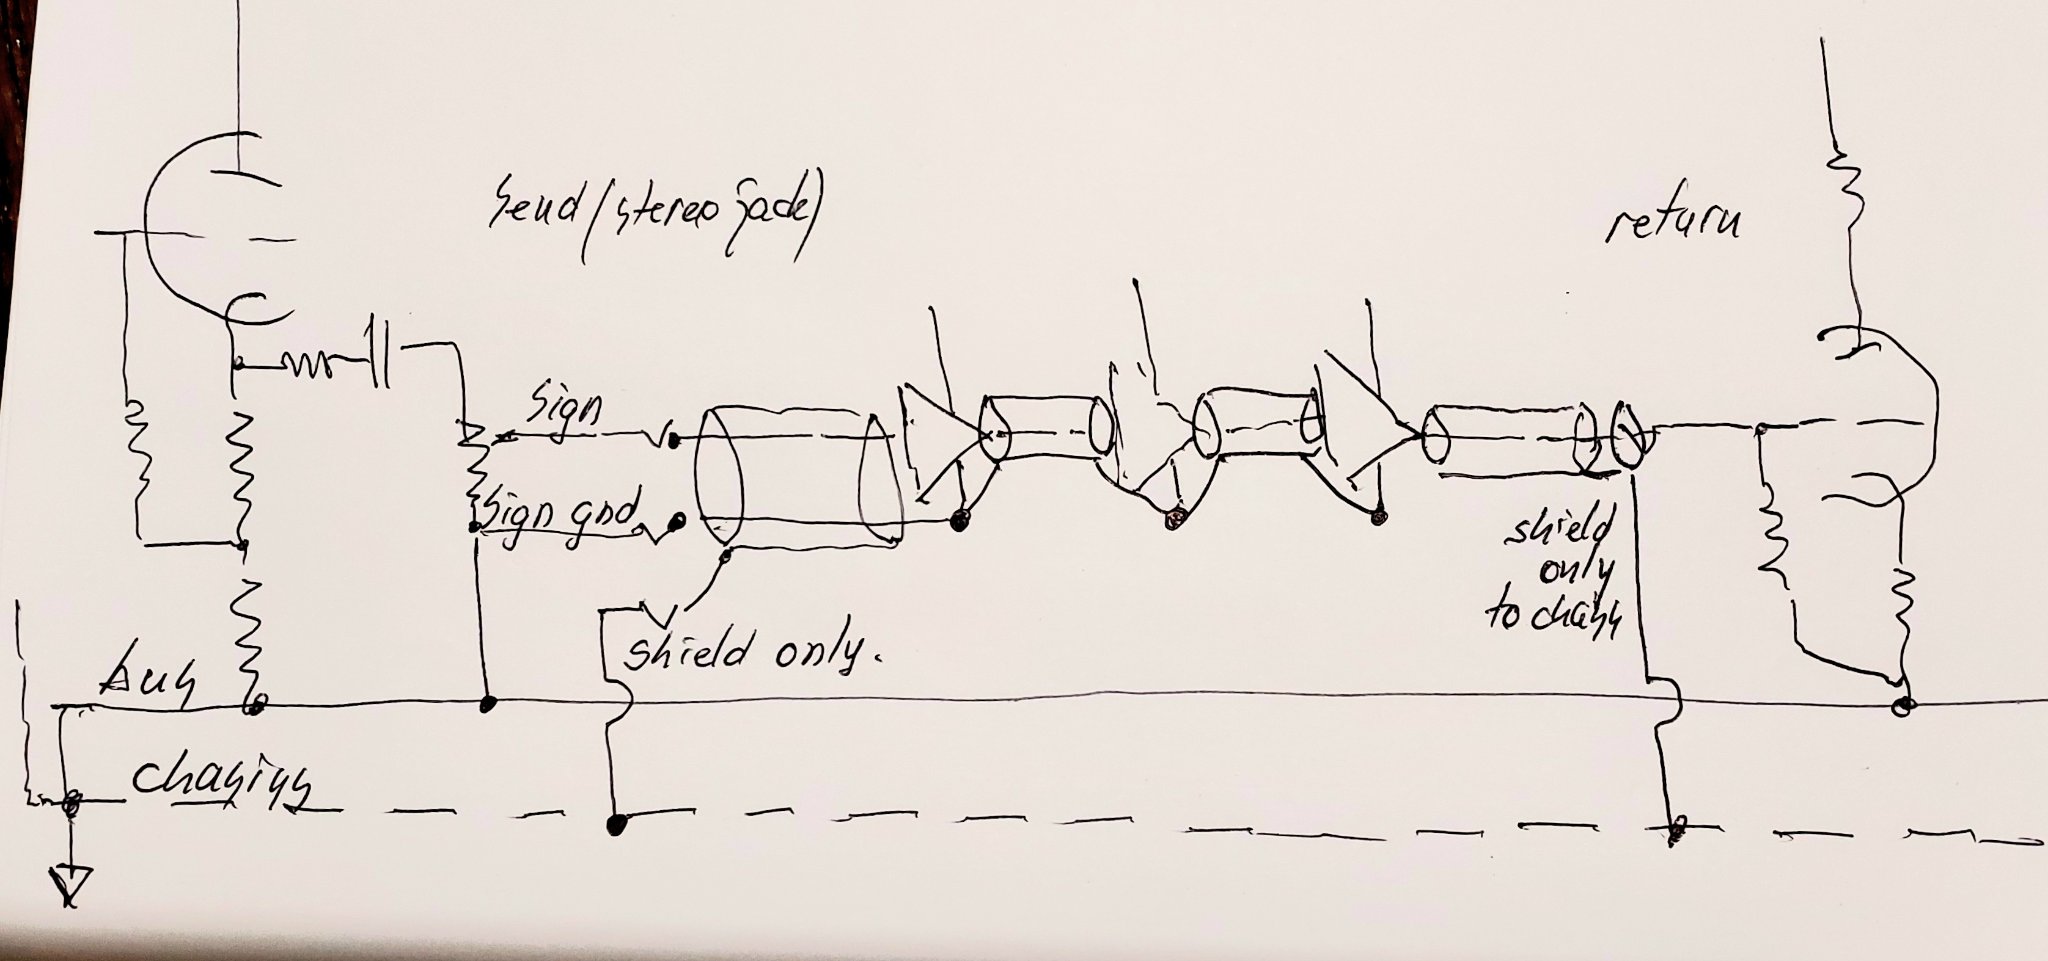 Send (stereo jack)
return
Sign
Sign gnd
shield
only
to chass
shield only.
bus
chasiss